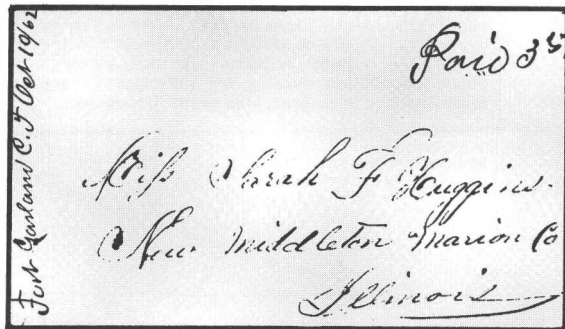 Fort Garland C.T Oct 19/62
Paid 3cts
Miss Sarah F Huggins.
New Middleton Marion Co
Illinois